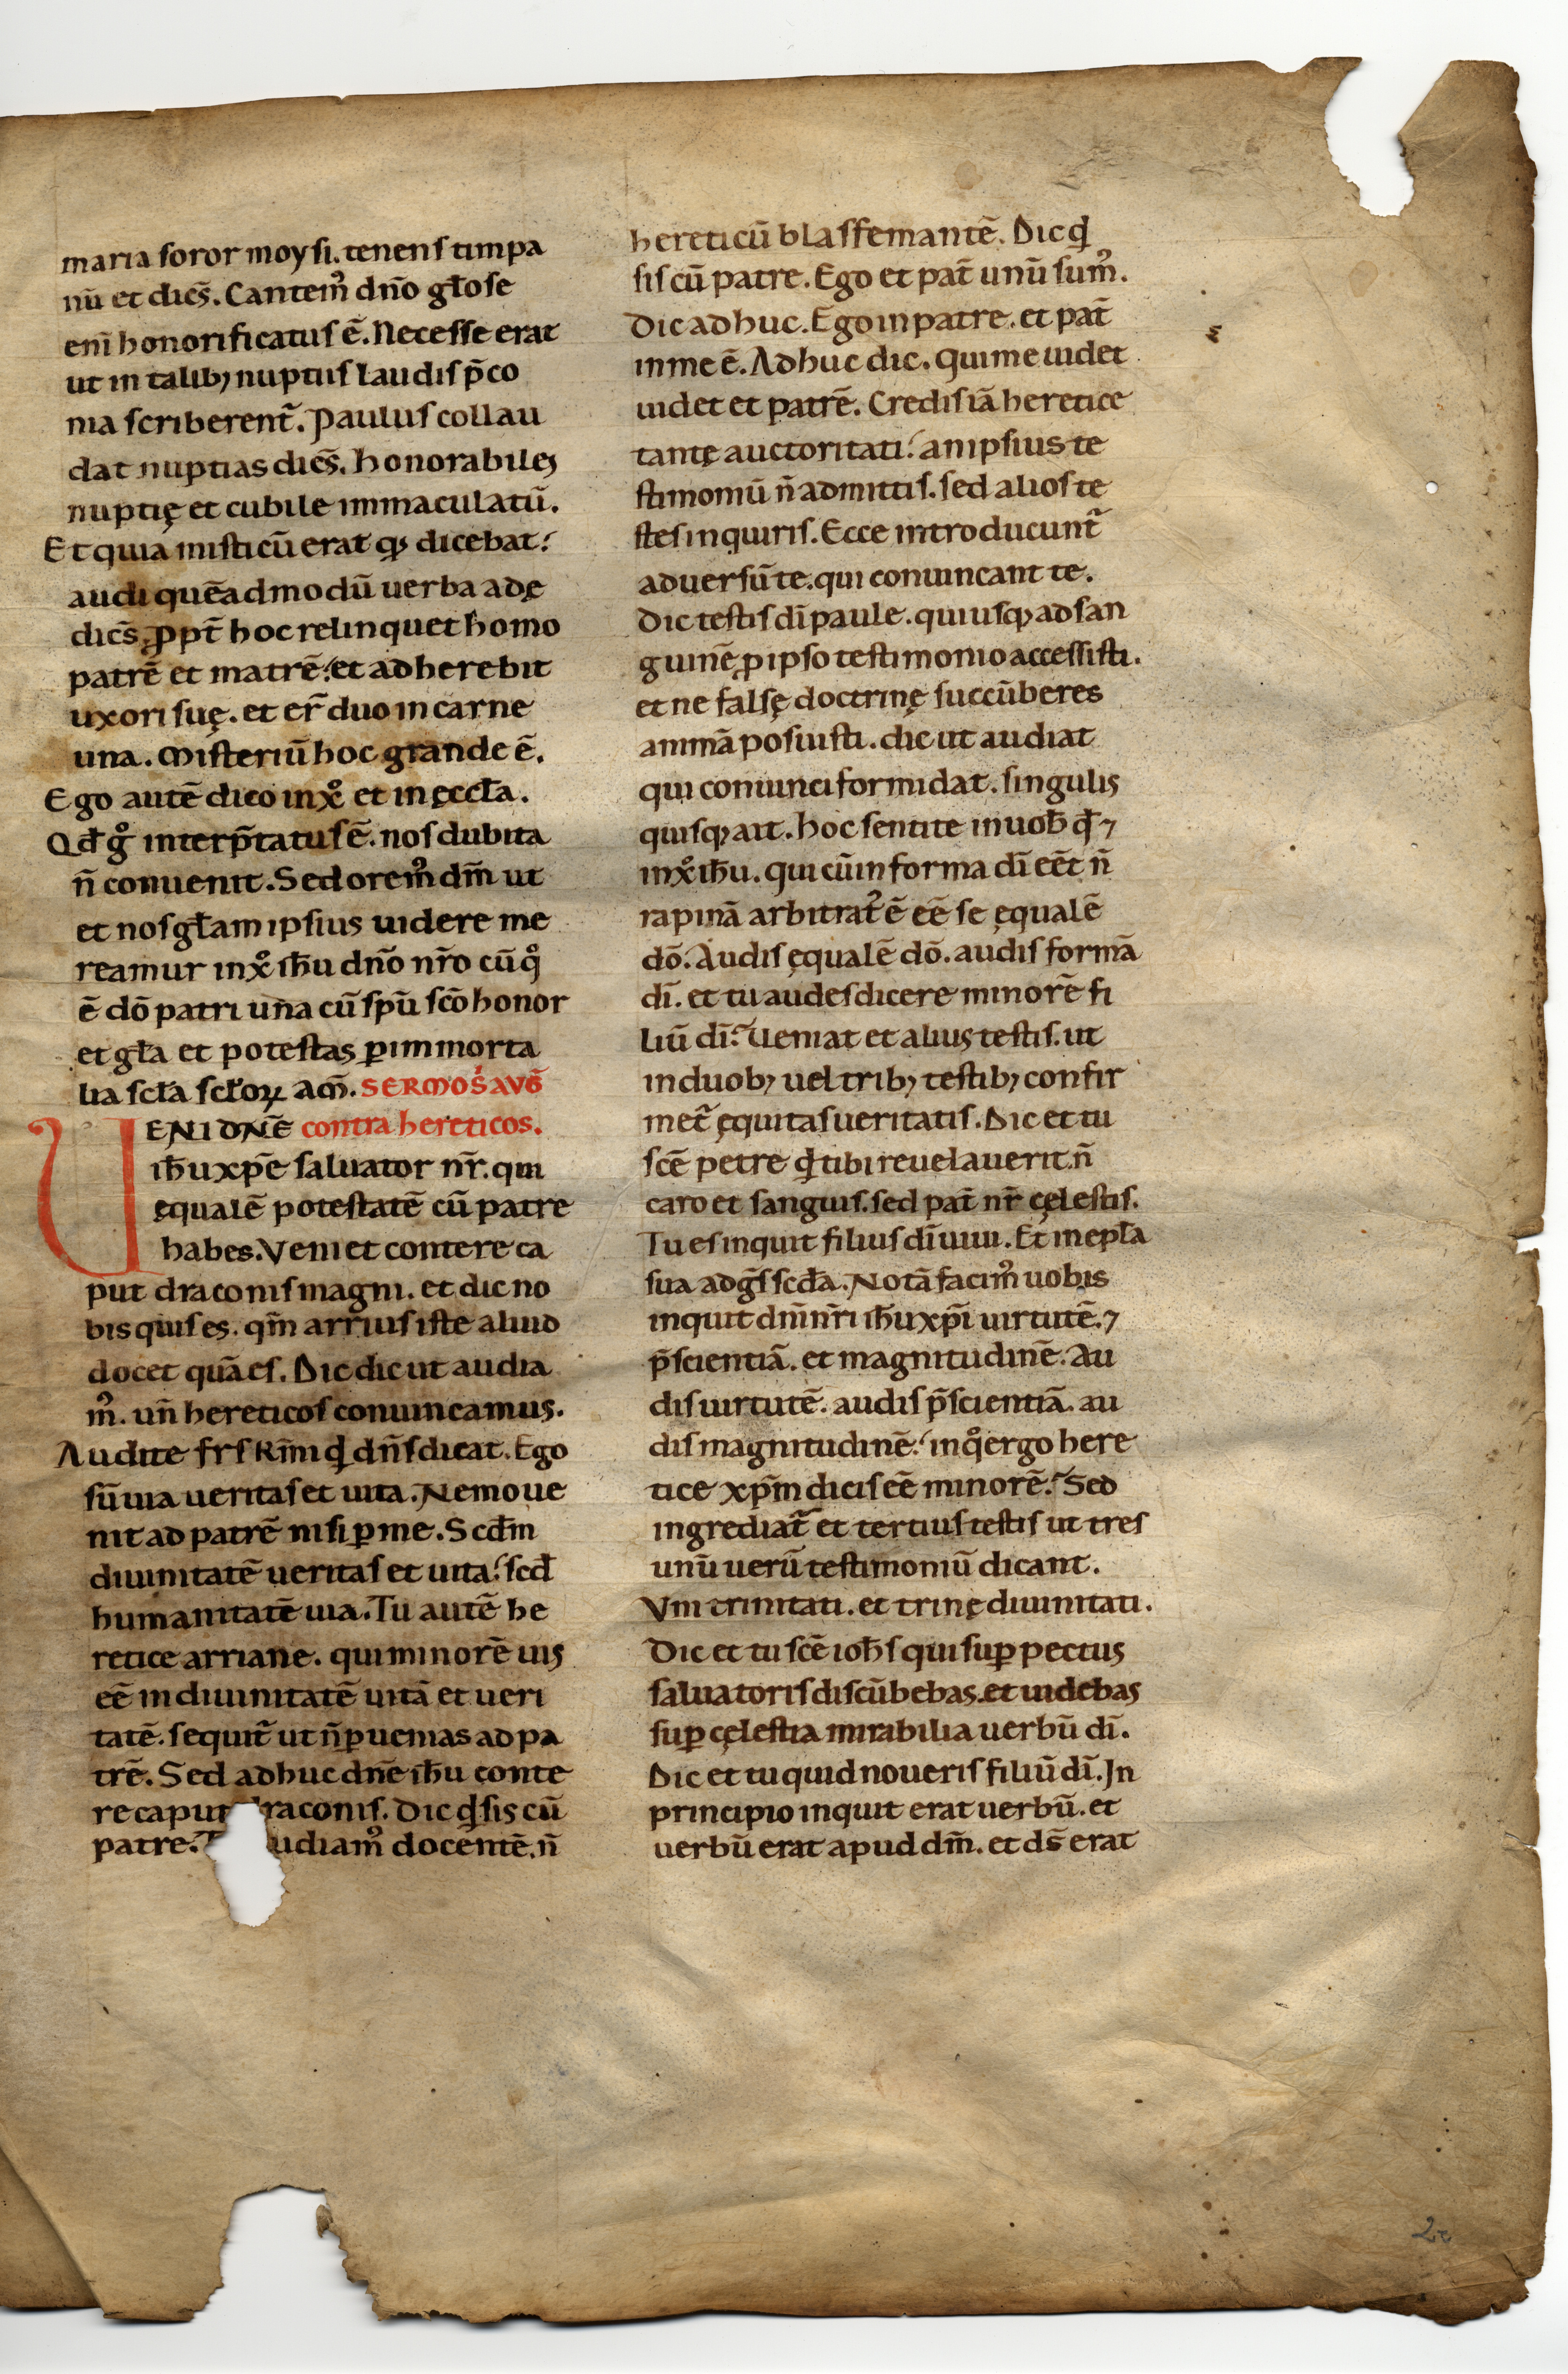 maria soror moysi. tenens timpa
nū et dicẽs. Cantemꝰ dño gl̄ose
eni honorificatus ē. Necesse erat
ut in talib; nuptiis laudis p̄co
nia scriberent̄. Paulus collau
dat nuptias dicẽs. honorabiles
nuptię et cubile immaculatū.
Et quia misticū erat qđ dicebat.
audi quēadmodū uerba adę
dicẽs. ꝓpt̄ hoc relinquet homo
patrē et matrē. et adherebit
uxori suę. et er̄ duo in carne
una. Misteriū hoc grande ē.
Ego autē dico in xp̊ et in ęccl̄a.
Qđ g̊ interp̄tatus ē. nos dubita
ñ conuenit. Sed oremꝰ dm̄ ut
et nos gl̄am ipsius uidere me
reamur in xp̊ ih̄u dño nr̄o cū q̊
ē dō patri una cū sp̄u sc̄o honor
et gl̄a et potestas ꝑ immorta
lia scl̄a scl̄oꝝ am̄. SERMO S̄ AVḠ
VENI DÑE contra hereticos.
ih̄u xp̄e saluator nr̄. qui
equalē potestatē cū patre
habes. Veni et contere ca
put draconis magni. et dic no
bis quis es. qm̄ arrius iste aliud
docet quā es. Dic dic ut audia
mꝰ. uñ hereticos conuincamus.
Audite frs̄ kr̄mi qđ dñs dicat. Ego
sū uia ueritas et uita. Nemo ue
nit ad patrē nisi ꝑ me. Scđm
diuinitatē ueritas et uita. scđ
humanitatē uia. Tu autē he
retice arriane. qui minorē uis
eē in diuinitatē uitā et ueri
tatē. sequit̄ ut ñ ꝑuenias ad pa
trē. Sed adhuc dñe ih̄u conte
re caput draconis. Dic qđ sis cū
patre. udiamꝰ docentē. ñ
hereticū blasfemantē. Dic qđ
sis cū patre. Ego et pat̄ unū sumꝰ.
Dic adhuc. Ego in patre. et pat̄
in me ē. Adhuc dic. Qui me uidet
uidet et patrē. Credis iā heretice
tantę auctoritati. an ipsius te
stimoniū ñ admittis. sed alios te
stes inquiris. Ecce introducunt̄
aduersū te. qui conuincant te.
Dic testis dī paule. qui usq; ad san
guinē ꝓ ipso testimonio accessisti.
et ne falsę doctrinę succūberes
animā posuisti. dic ut audiat
qui conuinci formidat. singulis
quisq; ait. hoc sentite in uob̄ qđ ⁊
in xp̊ ih̄u. qui cū in forma dī eēt ñ
rapinā arbitratꝰ ē eē se ęqualē
dō. Audis ęqualē dō. audis formā
dī. et tu audes dicere minorē fi
liū dī. Ueniat et alius testis. ut
in duob; uel trib; testib; confir
met̄ ęquitas ueritatis. Dic et tu
sc̄e petre qđ tibi reuelauerit. ñ
caro et sanguis. sed pat̄ nr̄ cęlestis.
Tu es inquit filius dī uiui. Et in epl̄a
sua adgs̄ scđa. Notā facimꝰ uobis
inquit dm̄ nr̄i ih̄u xp̄i uirtutē. ⁊
p̄scientiā. et magnitudinē. Au
dis uirtutē. audis p̄scientiā. au
dis magnitudinē. in q̊ ergo here
tice xp̄m dicis eē minorē. Sed
ingrediat̄ et tertius testis ut tres
unū uerū testimoniū dicant.
Vni trinitati. et trinę diuinitati.
Dic et tu sc̄e ioh̄s qui suꝑ pectus
saluatoris discūbebas. et uidebas
suꝑ cęlestia mirabilia uerbū dī.
Dic et tu quid noueris filiū dī. In
principio inquit erat uerbū. et
uerbū erat apud dm̄. et ds̄ erat